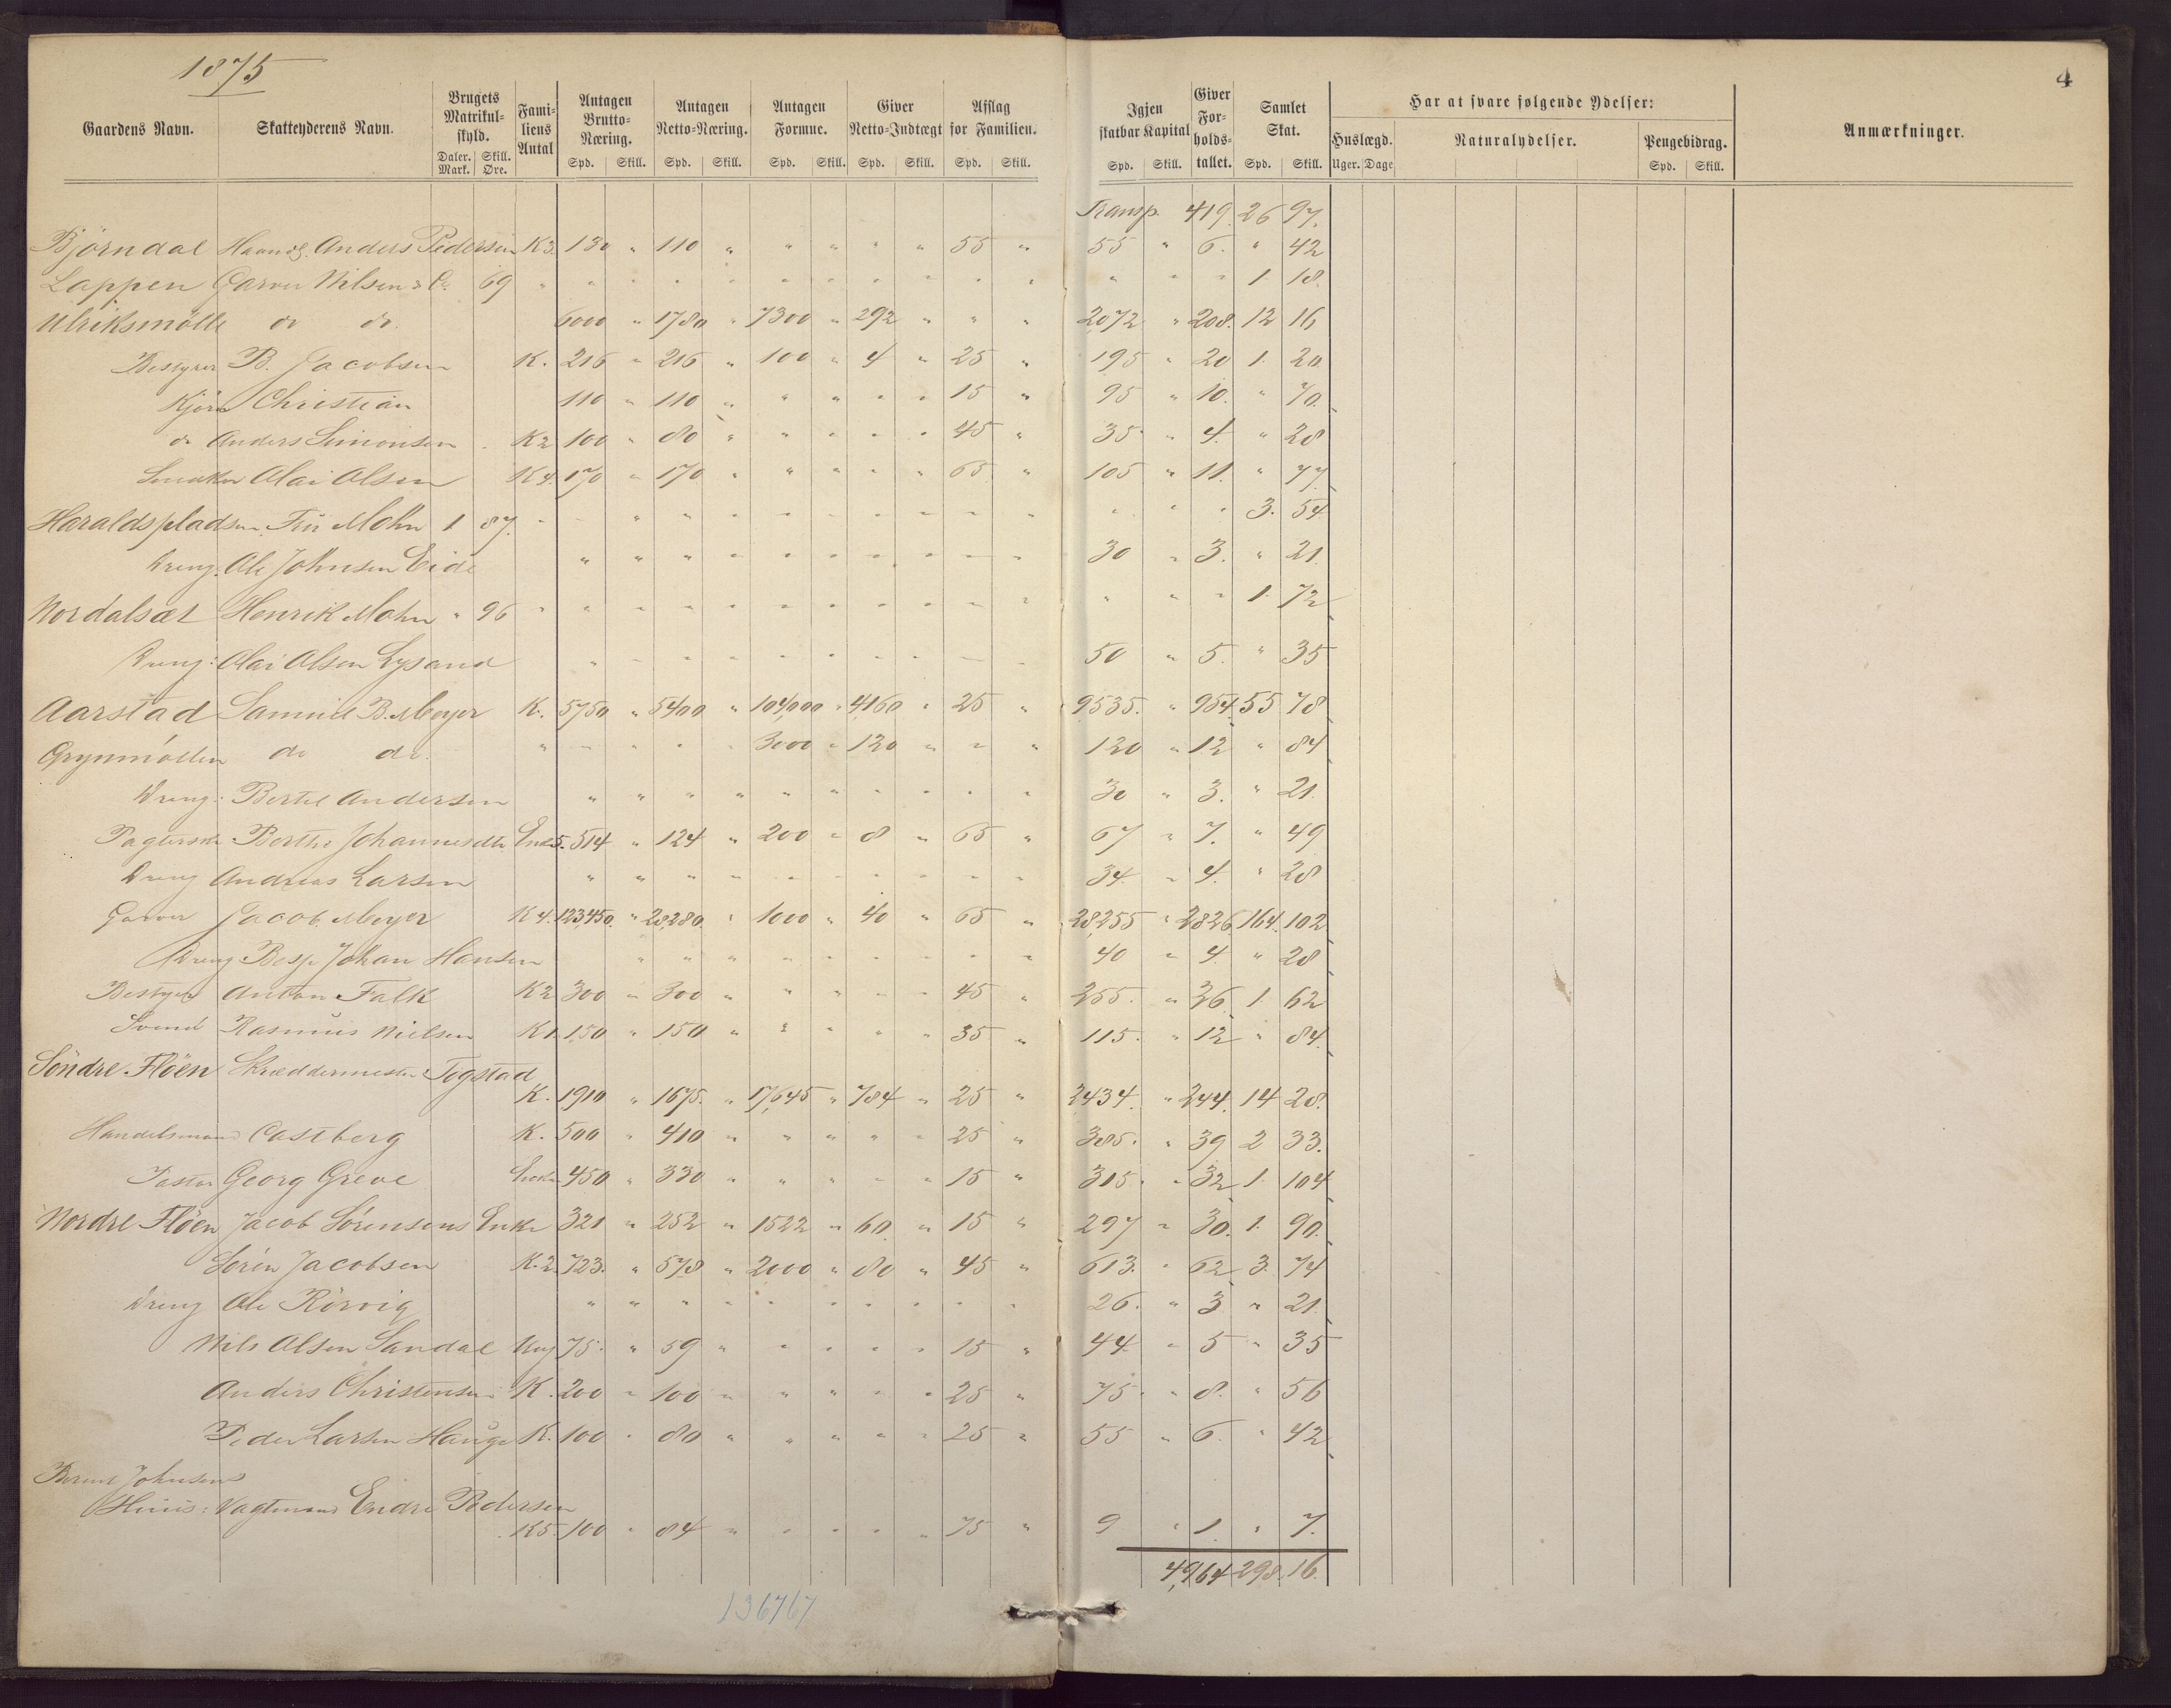 1875
4
Gaardens Navn. Skatteyderens Navn. Brugets Matrikul-skyld. Daler. Mark. Skill. Øre. Fami-liens Antal Antagen Brutto-Næring. Spd. Skill. Antagen Netto-Næring. Spd. Skill. Antagen Formue. Spd. Skill. Giver Netto-Indtægt Spd. Skill. Afslag for Familien. Spd. Skill. Igjen skatbar Kapital Spd. Skill. Giver For-holds-tallet. Samlet Skat. Spd. Skill. Har at svare følgende Ydelser: Huslægd. Uger. Dage Naturalydelser. Pengebidrag. Spd. Skill. Anmærkninger.
Transp. 419. 26 97.
Björndal Haandv. Anders Pedersen K3. 130 " 110 " " " " " 55 " 55 " 6. " 42
Lappen Garver Nilsen & Co. 69 " " " " " " " " " " " " " " 1 18.
Ulriksmölle do do. 6000 " 1780 " 7300 " 292 " " " 2072 " 208. 12 16
Bestyrer B. Jacobsen K. 216 " 216 " 100 " 4 " 25 " 195 " 20 1. 20.
Kjörer Christian 110 " 110 " " " " " 15 " 95 " 10. " 70.
do Anders Simonsen K2 100 " 80 " " " " " 45 " 35. " 4. " 28
Snedker Olai Olsen K4. 170 " 170 " " " " " 65 " 105 " 11. " 77.
Haraldspladsen Frü Mohn 1 87. " " " " " " " " " " " " " " 3. 54
Dreng. Ole Johnsen Eide " " " " " " " " " " 30 " 3. " 21.
Nordalsæt Henrik Mohn " 96 " " " " " " " " " " " " " " 1. 72
Dreng: Olai Olsen Lysand " " " " " " " " " " 50 " 5. " 35
Aarstad Samuel B. Meyer K. 5750 " 5400 " 104,000 " 4160 " 25 " 9535. " 954. 55 78
Grynmöllen do do. " " " " " 3000 " 120 " " " 120 " 12 " 84
Dreng: Bertel Andersen " " " " " " " " " " 30 " 3. " 21.
Pagterske Berthe Johannesdtr Enke 5. 514 " 124 " 200 " 8 " 65 " 67 " 7. " 49
Dreng Andreas Larsen " " " " " " " " " " 34. " 4. " 28
Garver Jacob Meyer K4. 123,450. " 28,280. " 1000 " 40 " 65 " 28,255 " 2826. 164. 102
Dreng Besp. Johan Hansen " " " " " " " " " 40 " 4. " 28
Bestyrer Anton Falk K2 300 " 300 " " " " " 45 " 255. " 26. 1. 62
Svend Rasmus Nielsen K1. 150 " 150 " " " " " 35 " 115. " 12 " 84.
Söndre Flöen Skreddermester Togstad
K. 1910 " 1675. " 17,645 " 784 " 25 " 2434. " 244. 14 28.
Handelsmand Castberg K. 500 " 410 " " " " " 25 " 385. " 39 2 33.
Pastor Georg Greve Enke 450 " 330 " " " " " 15 " 305. " 32 1. 104
Nordre Flöen Jacob Sörensens Enke 321 " 252 " 1522 " 60 " 15 " 297 " 30. 1. 90.
Sörén Jacobsen K.2. 723. " 578 " 2000 " 80 " 45 " 613. " 62 3. 74
Dreng Ole Rörvig " " " " " " " " " " 26. " 3 " 21.
Nils Olsen Sandal Ung 75. " 59 " " " " " 15 " 44 " 5 " 35
Anders Christensen K. 200 " 100 " " " " " 25 " 75. " 8. " 56
Peder Larsen Hauge K. 100 " 80 " " " " " 25 " 55 " 6. " 42
Berent Johnsens
Huus: Vagtmand Endre Pedersen
K5. 100 " 84 " " " " " 75 " 9 " 1. " 7.
4,964 298. 16.
136767